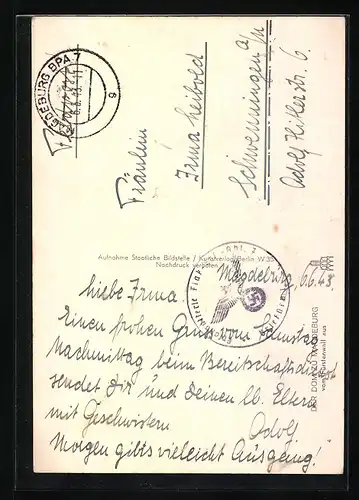 MAGDEBURG BPA 7
6.6.43.-11
g
Feldpost
Fräulein
Irma Leibold
Schwenningen a/N
Adolf Hitlerstr. 6.
Aufnahme Staatliche Bildstelle / Kunstverlag Berlin W 35
Nachdruck verboten
DER DOM ZU MAGDEBURG
vom Fürstenwall aus
Magdeburg, 6.6.43.
Liebe Irma.
Einen frohen Gruss vom Samstag
Nachmittag beim Bereitschaftsdienst
sendet Dir und Deinen lb. Eltern
mit Geschwistern Adolf.
Morgen gibts vielleicht Ausgang!